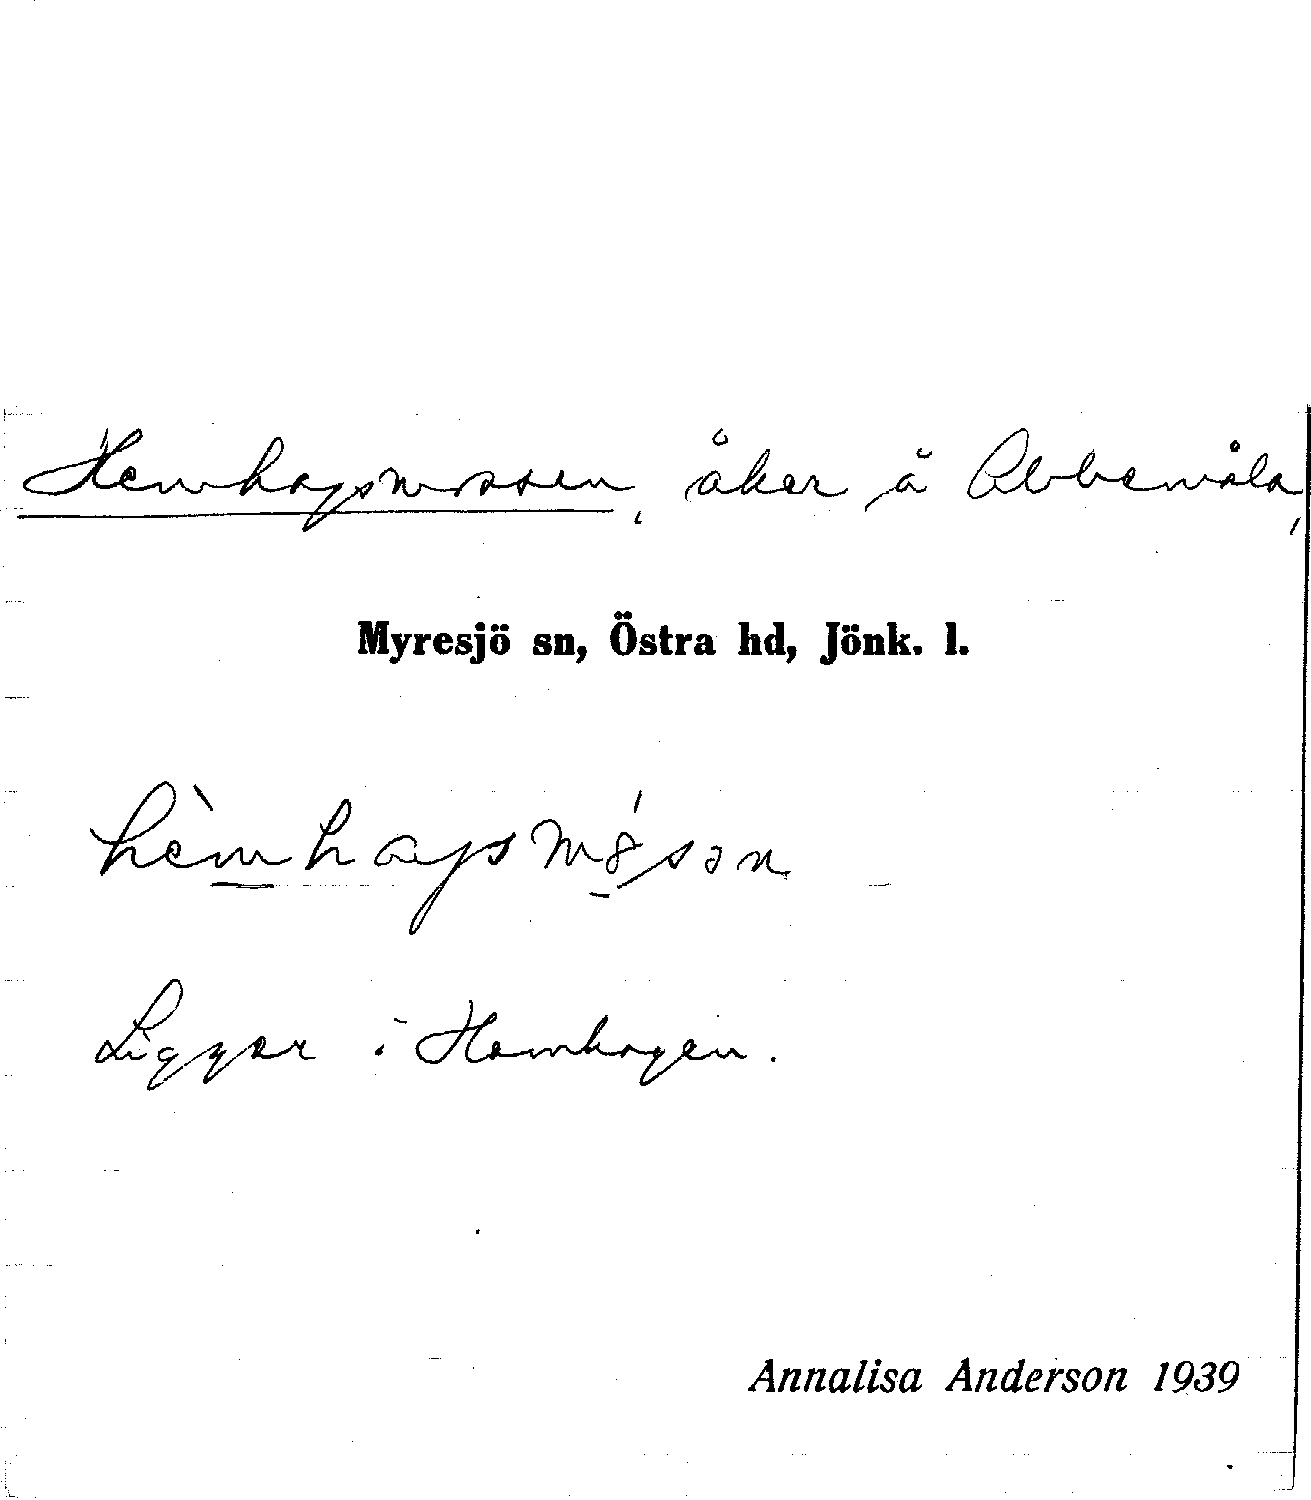 Hemhagsmossen, åker å Abbemåla,
Myresjö sn, Östra hd, Jönk. l.
hèmhagsmósən
Ligger i Hemhagen.
Annalisa Anderson 1939